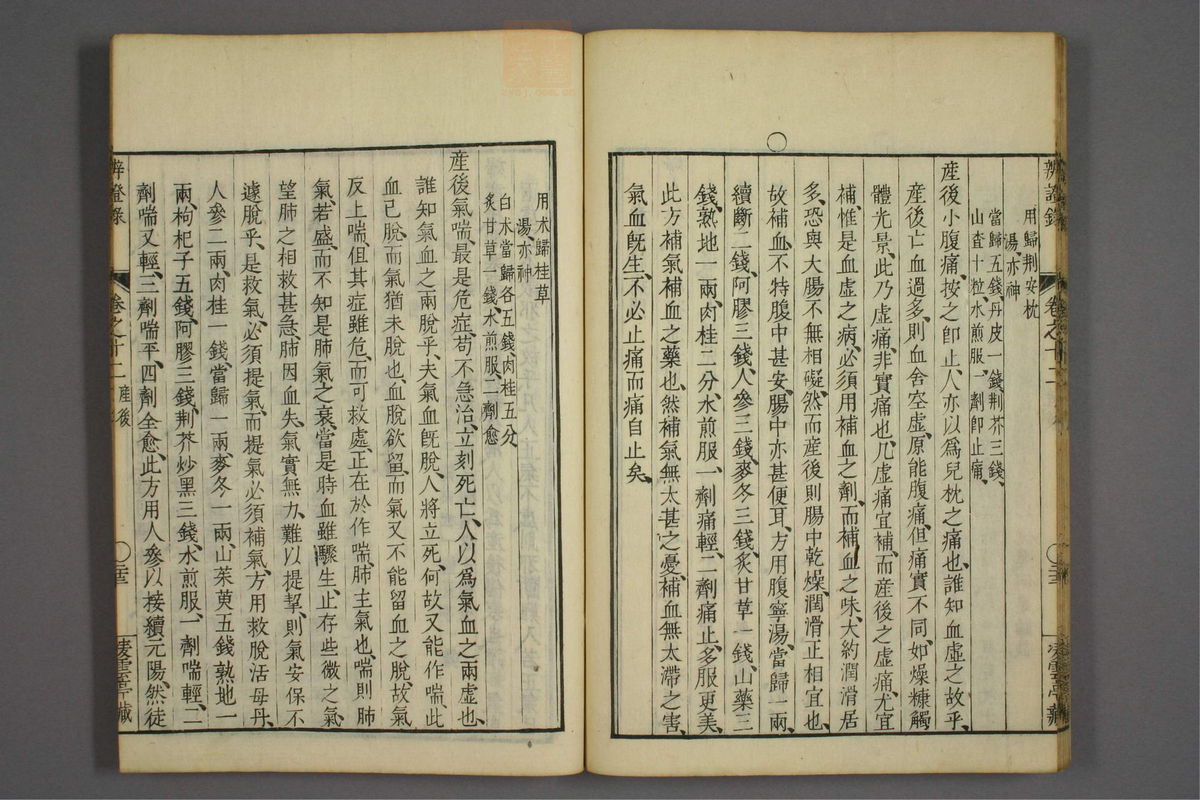 辨證錄
卷之十二
凌雲亭藏
用歸荆安枕
湯亦神
當歸五錢、丹皮一錢、荆芥三錢、
山查十粒、水煎服、一劑卽止痛、
産後小腹痛、按之卽止、人亦以爲兒枕之痛也、誰知血虛之故乎、
産後亡血過多、則血舍空虛、原能腹痛、但痛實不同、如燥糠觸
體光景、此乃虛痛、非實痛也、凡虛痛宜補、而産後之虛痛、尤宜
補、惟是血虛之病、必須用補血之劑、而補血之味、大約潤滑居
多、恐與大腸不無相礙、然而産後則腸中乾燥、潤滑正相宜也、
故補血、不特腹中甚安、腸中亦甚便耳、方用腹寧湯、當歸一兩、
續斷二錢、阿膠三錢、人參三錢、麥冬三錢、炙甘草一錢、山藥三
錢、熟地一兩、肉桂二分、水煎服、一劑痛輕、二劑痛止、多服更美、
此方補氣補血之藥也、然補氣無太甚之憂、補血無太滯之害、
氣血旣生、不必止痛而痛自止矣、
用朮歸桂草
湯亦神
白朮當歸各五錢、肉桂五分、
炙甘草一錢、水煎服、二劑愈
産後氣喘、最是危症、苟不急治、立刻死亡、人以爲氣血之兩虛也、
誰知氣血之兩脫乎、夫氣血旣脫、人將立死、何故又能作喘、此
血已脫、而氣猶未脫也、血脫欲留、而氣又不能留血之脫、故氣
反上喘、但其症雖危、而可救處、正在於作喘、肺主氣也、喘則肺
氣若盛、而不知是肺氣之衰、當是時血雖驟生、止存些微之氣、
望肺之相救甚急、肺因血失、氣實無力、難以提挈、則氣安保不
遽脫乎、是救氣必須提氣、而提氣必須補氣、方用救脫活母丹、
人參二兩、肉桂一錢、當歸一兩、麥冬一兩、山茱萸五錢、熟地一
兩、枸杞子五錢、阿膠三錢、荆芥炒黑三錢、水煎服、一劑喘輕、二
劑喘又輕、三劑喘平、四劑全愈、此方用人參以接續元陽、然徒
辨證錄
卷之十二
産後
凌雲亭藏